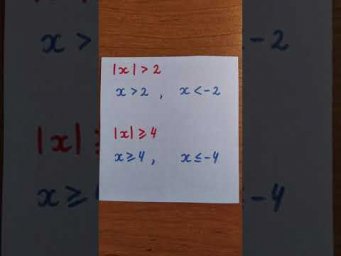 |x| > 2
x > 2 , x < -2
|x| ≥ 4
x ≥ 4 , x ≤ -4